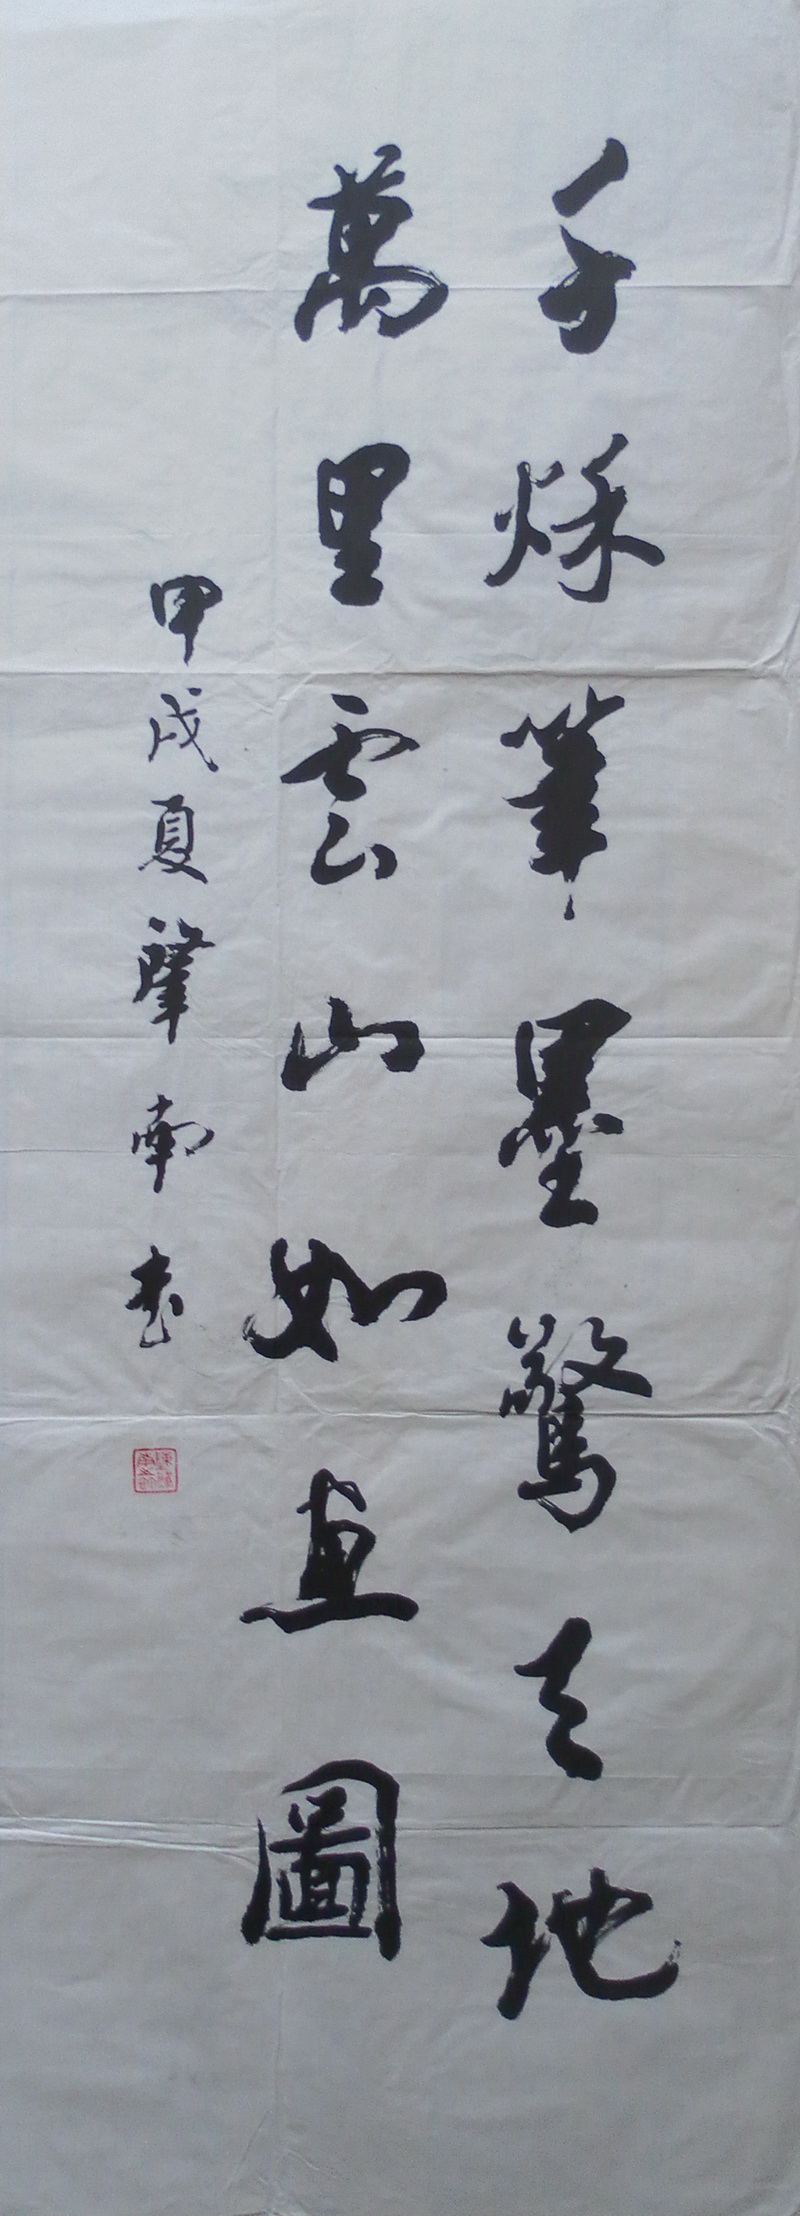 千秌筆墨驚天地
萬里雲山如畫圖
甲戌夏肇南书